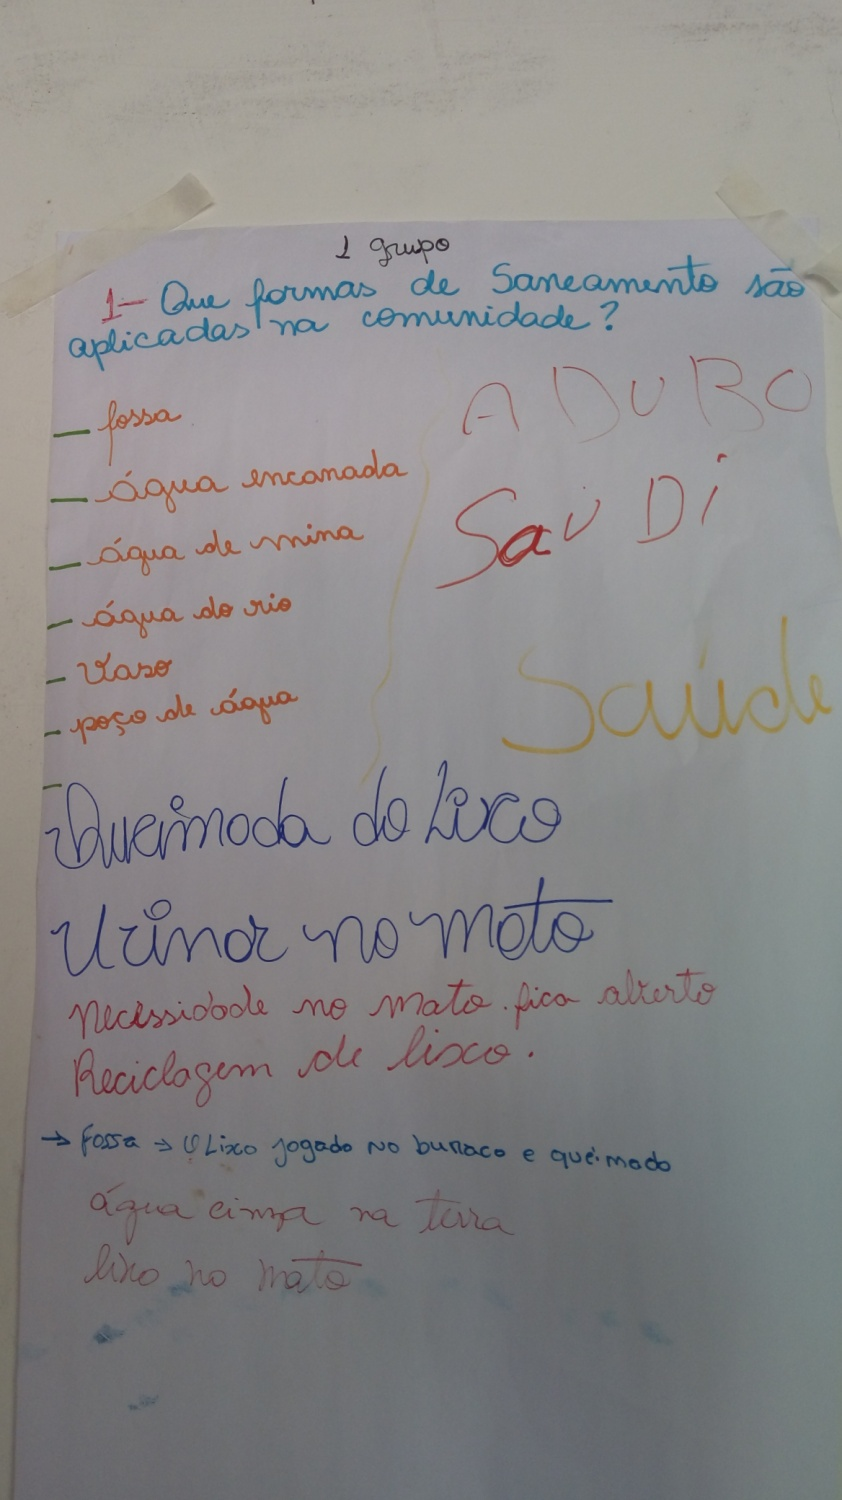 1 grupo
1- Que formas de Saneamento são
aplicadas na comunidade?
- fossa
- água encanada
- água de mina
- água do rio
- Vaso
- poço de água
-
ADUBO
SaúDi
Saúde
Queimada do Lixo
Urinar no mato
Necessidade no mato. fica aberto
Reciclagem de lixo.
→ fossa → O Lixo jogado no buraco e queimado
água cinza na terra
lixo no mato